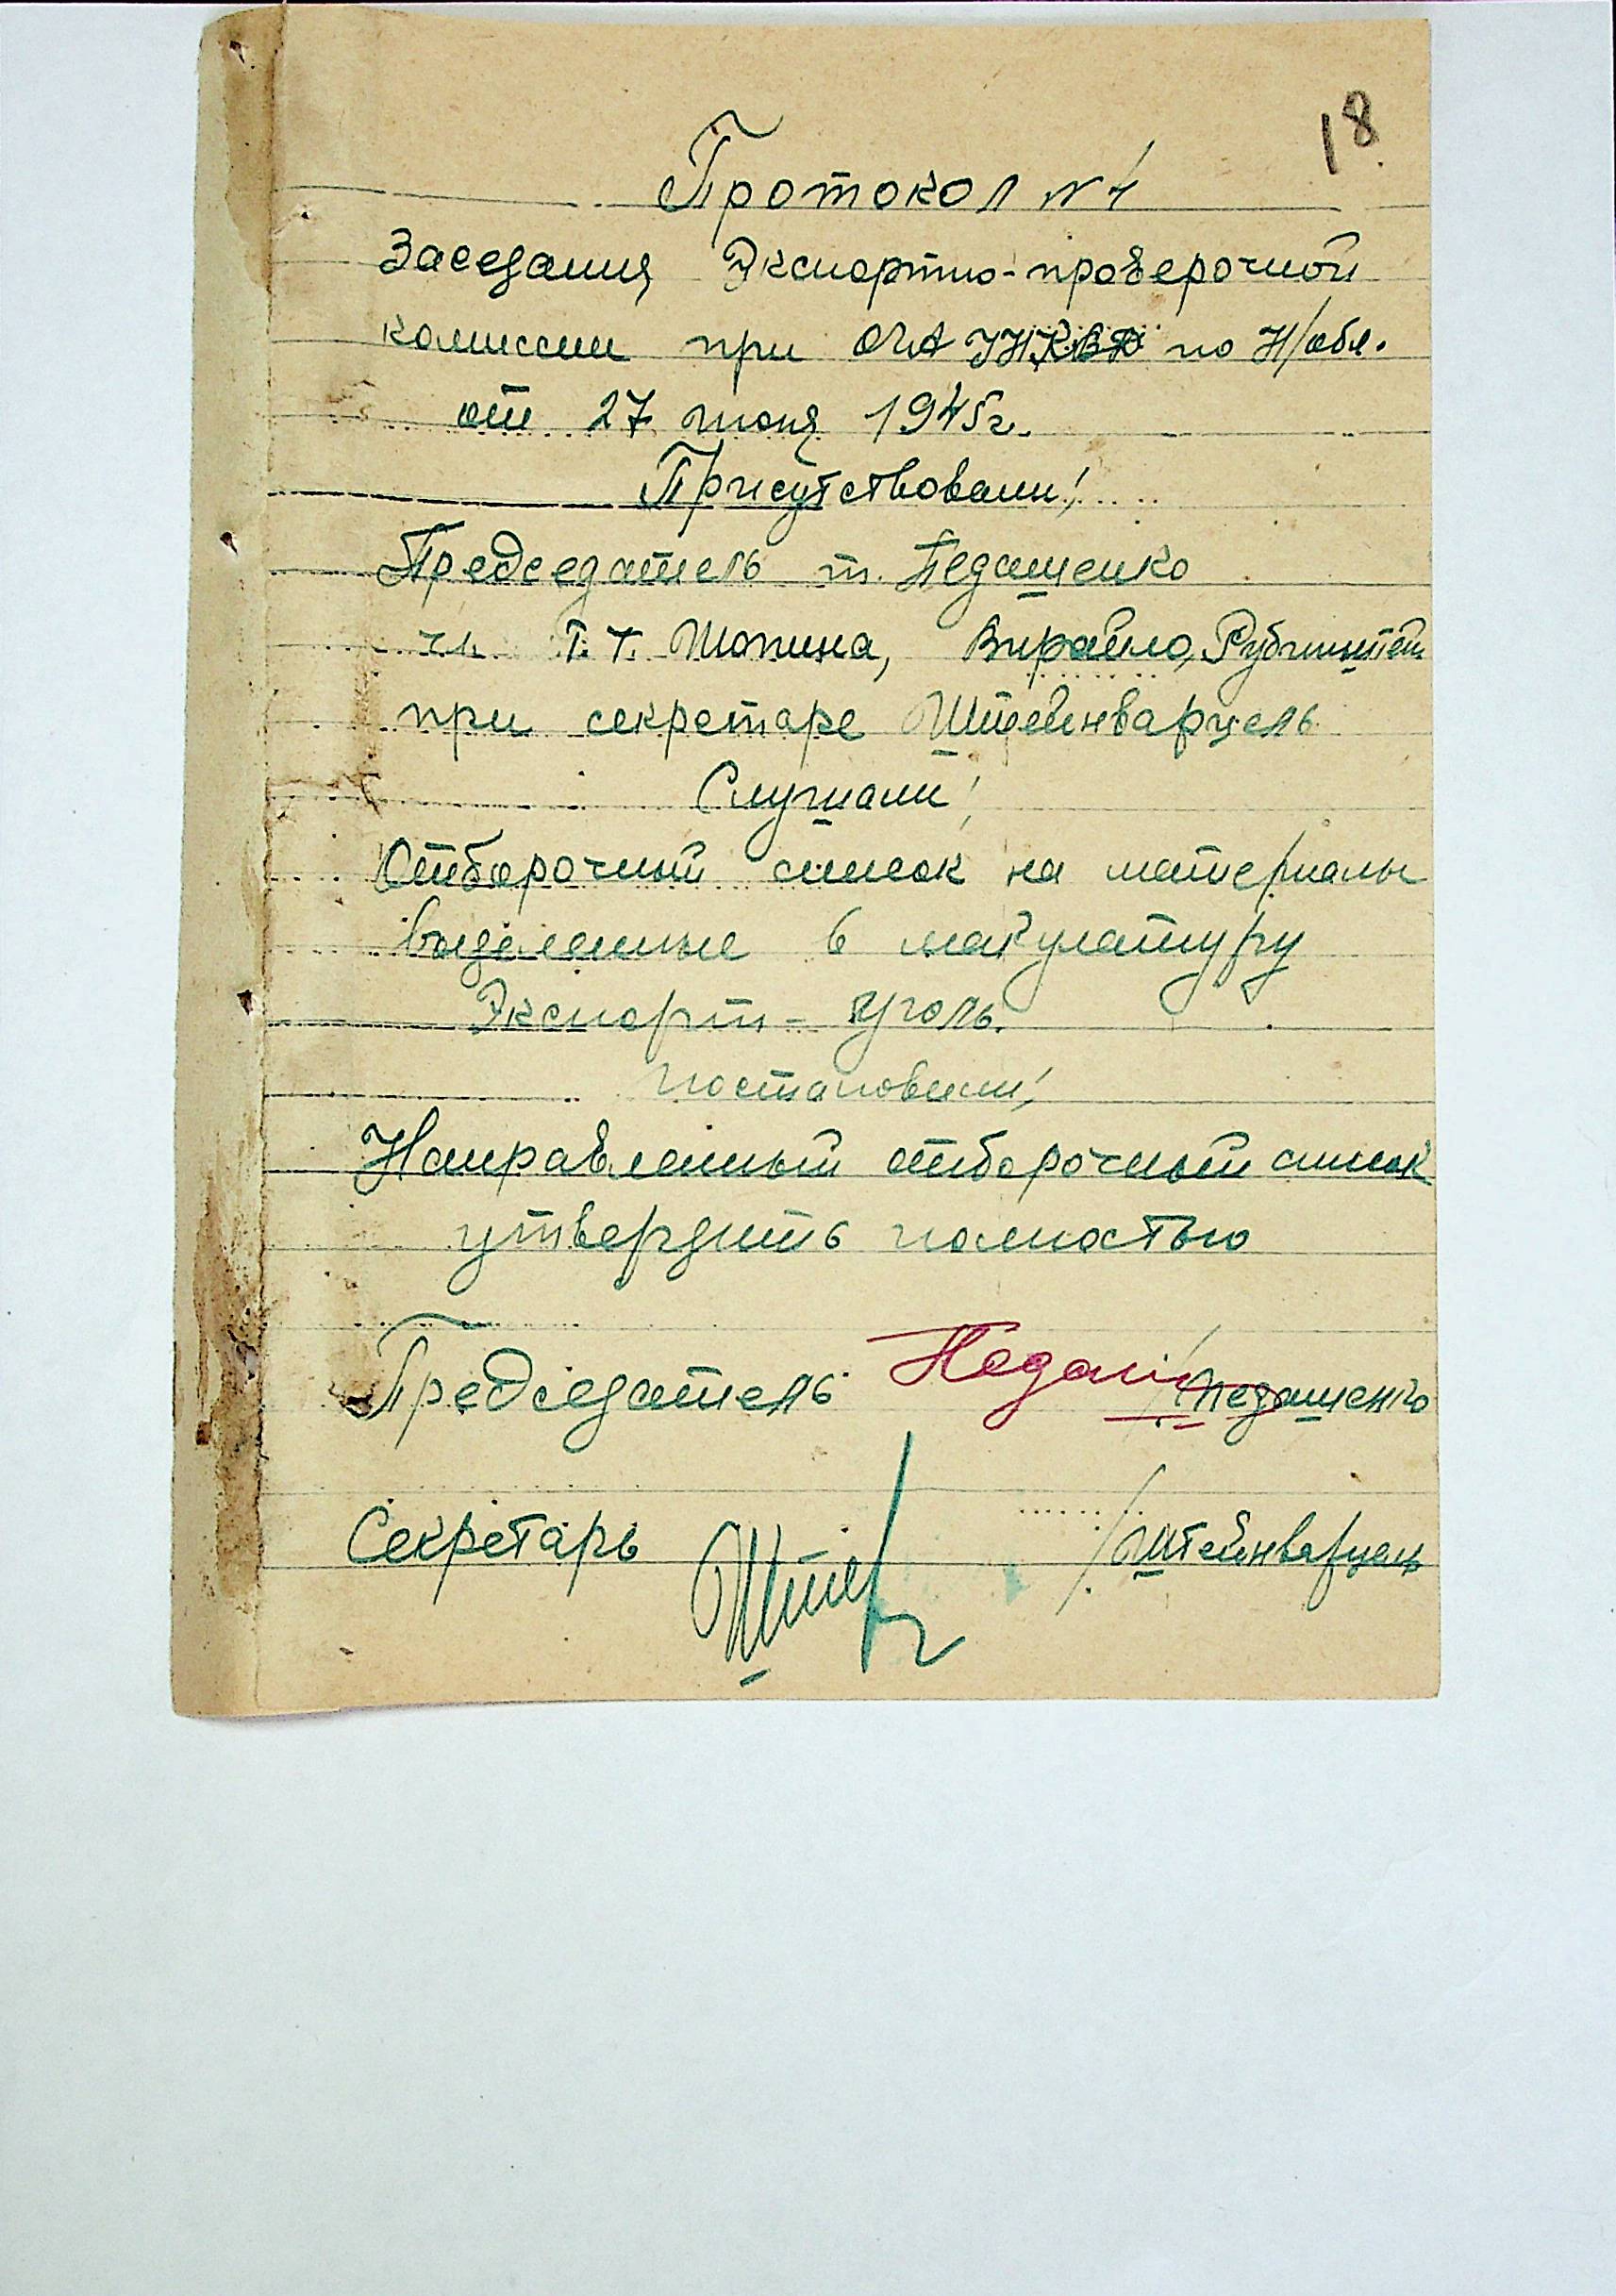 18
Протокол N 1
Заседания Экспортно-проверочной
комиссии при ОГА УНКВД по Н/обл.
от 27 июня 1945г.
Присутствовали:
Председатель т. Недашенко
чл. т.т. Шопина, Вирайло, Рубинштейн
при секретаре Штейнварцель
Слушали:
Отборочный список на материалы
выделенные в макулатуру
Экспорт-уголь.
постановили:
Направленный отборочный список
утвердить полностью
Председатель Недаш /Недашенко
Секретарь /Штейнварцель